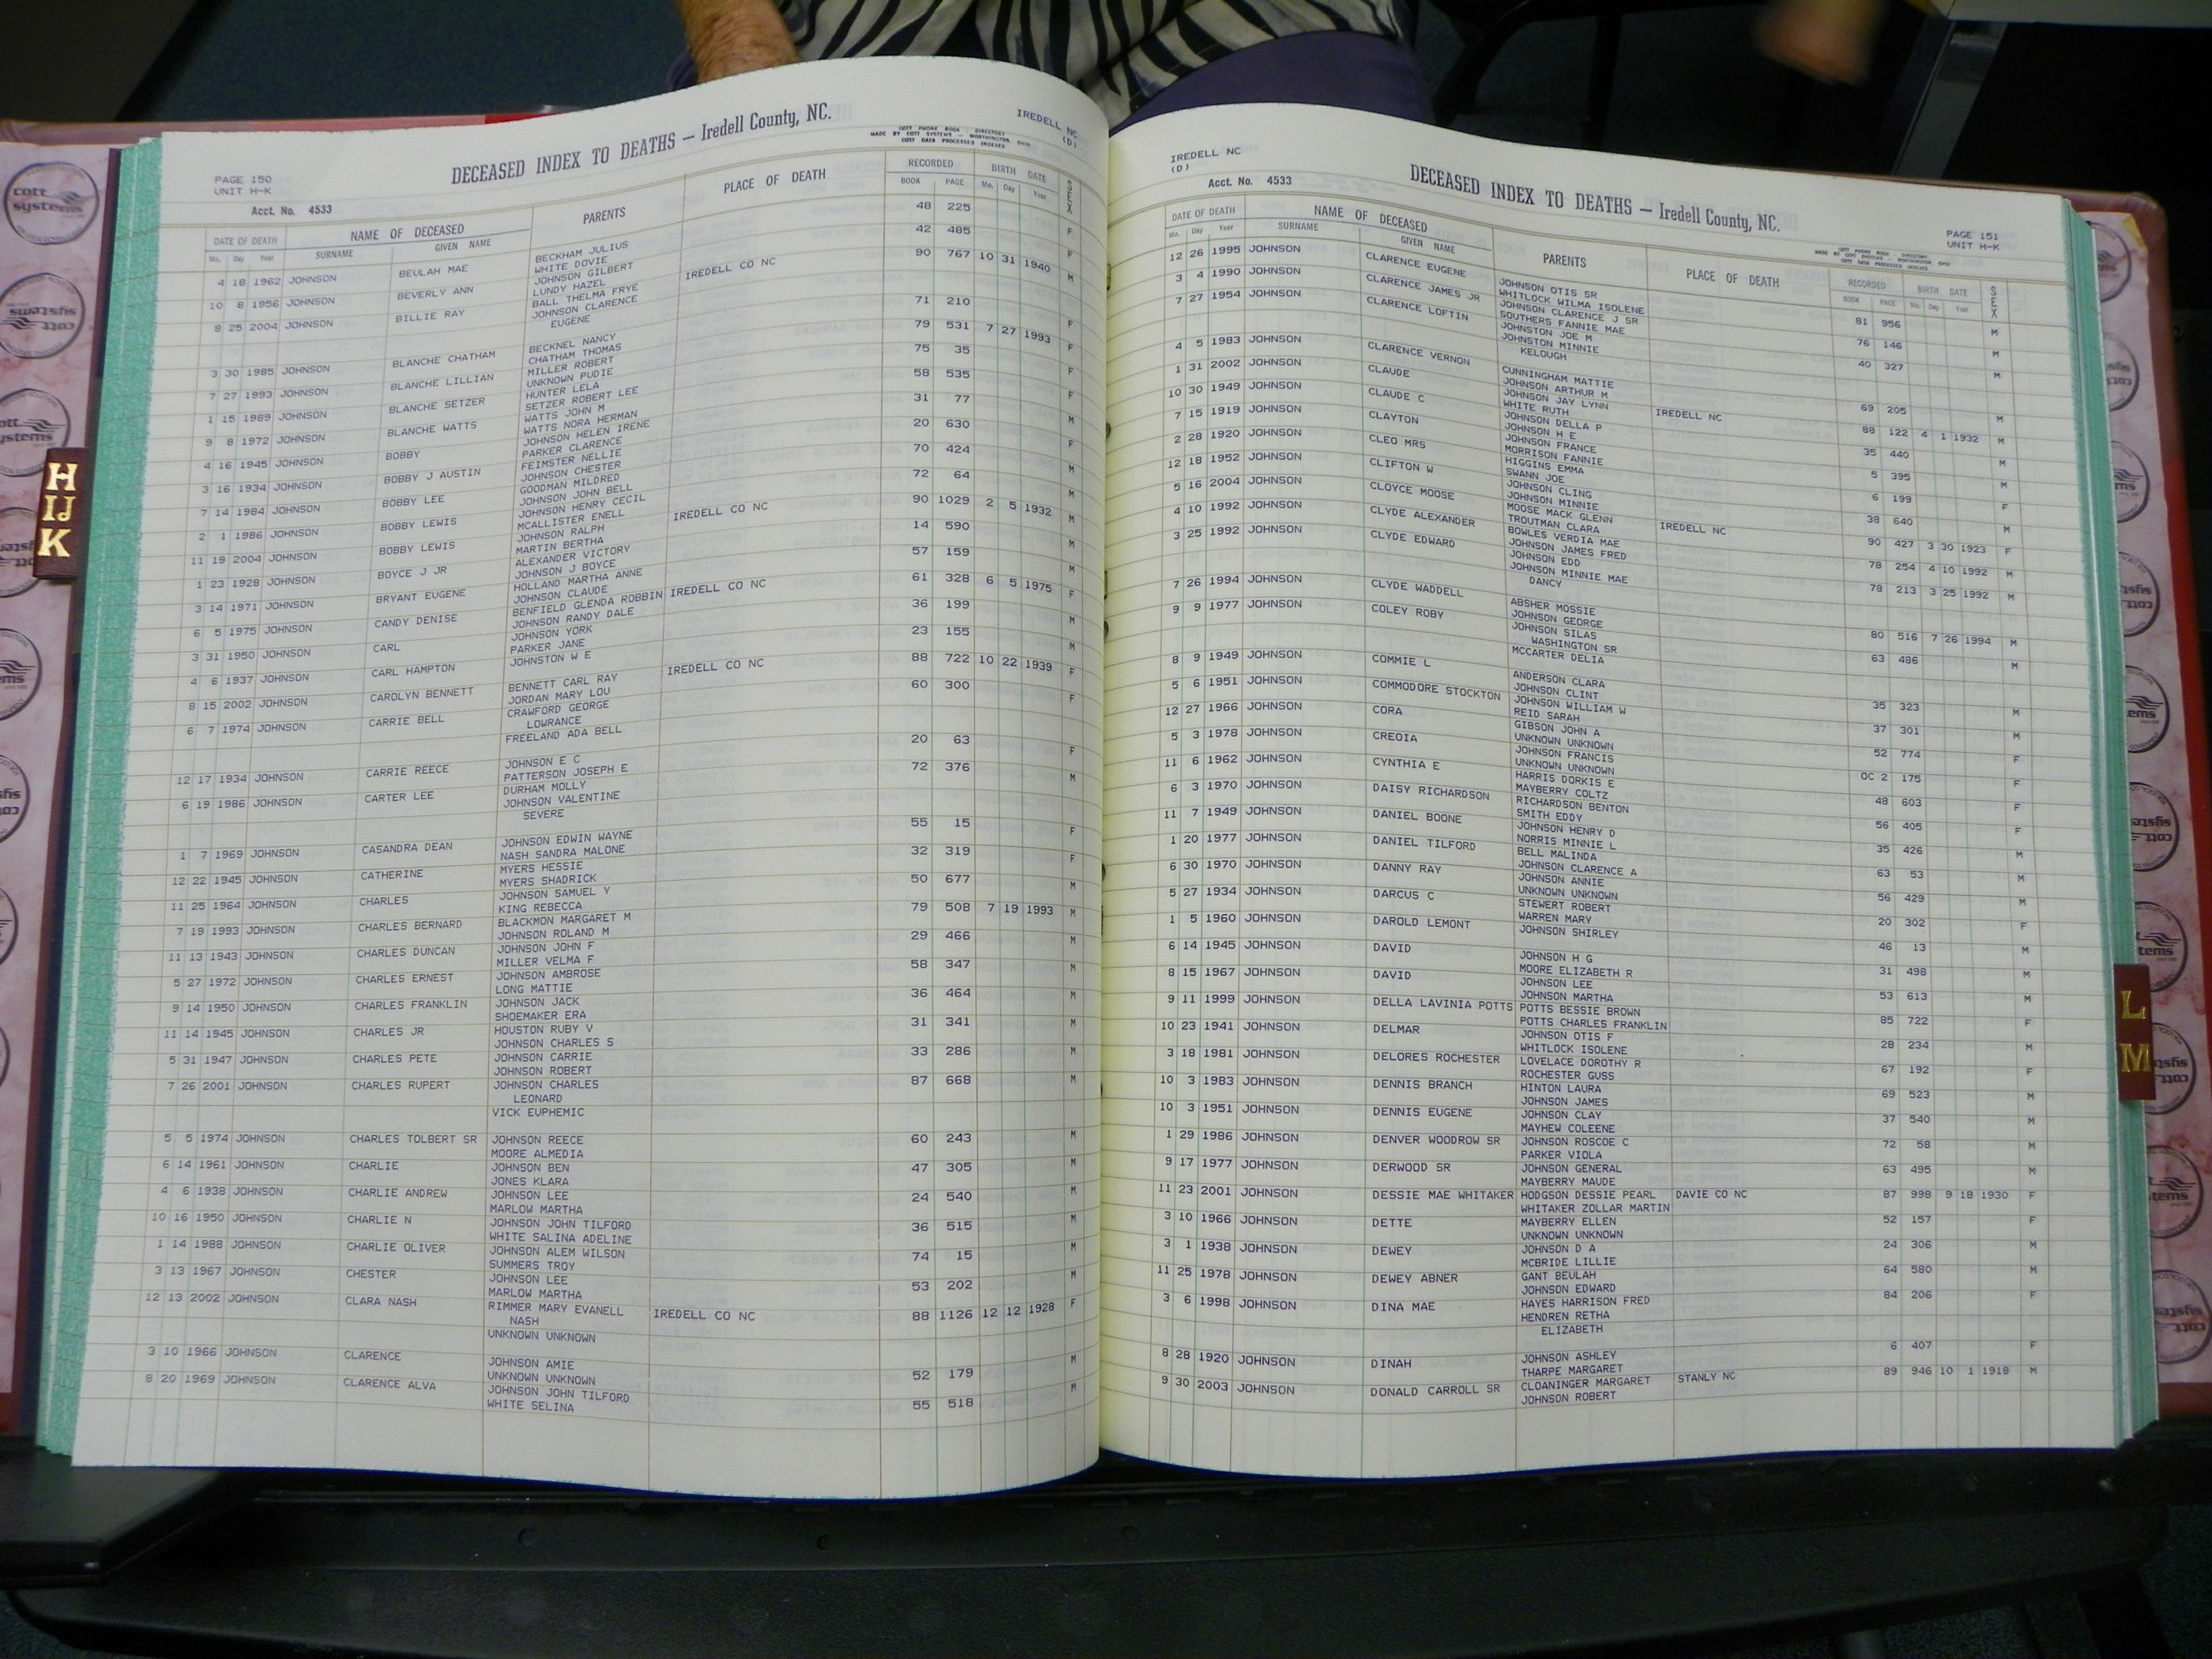 DECEASED INDEX TO DEATHS — Iredell County, NC.
IREDELL NC
(D)
COTT PHONE BOOK - DIRECTORY
MADE BY COTT SYSTEMS - WORTHINGTON, OHIO
COTT DATA PROCESSED INDEXES
PAGE 150
UNIT H-K
Acct. No. 4533
DATE OF DEATH NAME OF DECEASED PARENTS PLACE OF DEATH RECORDED BIRTH DATE SEX
Mo. Day Year SURNAME GIVEN NAME BOOK PAGE Mo. Day Year
4 18 1962 JOHNSON BEULAH MAE BECKHAM JULIUS 48 225 F
WHITE DOVIE
10 8 1956 JOHNSON BEVERLY ANN JOHNSON GILBERT 42 485 F
LUNDY HAZEL
8 25 2004 JOHNSON BILLIE RAY BALL THELMA FRYE IREDELL CO NC 90 767 10 31 1940 M
JOHNSON CLARENCE
EUGENE
3 30 1985 JOHNSON BLANCHE CHATHAM BECKNEL NANCY 71 210 F
CHATHAM THOMAS
7 27 1993 JOHNSON BLANCHE LILLIAN MILLER ROBERT 79 531 7 27 1993 F
UNKNOWN PUDIE
1 15 1989 JOHNSON BLANCHE SETZER HUNTER LELA 75 35 F
SETZER ROBERT LEE
9 8 1972 JOHNSON BLANCHE WATTS WATTS JOHN M 58 535 F
WATTS NORA HERMAN
4 16 1945 JOHNSON BOBBY JOHNSON HELEN IRENE 31 77 M
PARKER CLARENCE
3 16 1934 JOHNSON BOBBY J AUSTIN FEIMSTER NELLIE 20 630 F
JOHNSON CHESTER
7 14 1984 JOHNSON BOBBY LEE GOODMAN MILDRED 70 424 M
JOHNSON JOHN BELL
2 1 1986 JOHNSON BOBBY LEWIS JOHNSON HENRY CECIL 72 64 M
MCALLISTER ENELL
11 19 2004 JOHNSON BOBBY LEWIS JOHNSON RALPH IREDELL CO NC 90 1029 2 5 1932 M
MARTIN BERTHA
1 23 1928 JOHNSON BOYCE J JR ALEXANDER VICTORY 14 590 M
JOHNSON J BOYCE
3 14 1971 JOHNSON BRYANT EUGENE HOLLAND MARTHA ANNE 57 159 M
JOHNSON CLAUDE
6 5 1975 JOHNSON CANDY DENISE BENFIELD GLENDA ROBBIN IREDELL CO NC 61 328 6 5 1975 F
JOHNSON RANDY DALE
3 31 1950 JOHNSON CARL JOHNSON YORK 36 199 M
PARKER JANE
4 6 1937 JOHNSON CARL HAMPTON JOHNSTON W E 23 155 M
8 15 2002 JOHNSON CAROLYN BENNETT BENNETT CARL RAY IREDELL CO NC 88 722 10 22 1939 F
JORDAN MARY LOU
6 7 1974 JOHNSON CARRIE BELL CRAWFORD GEORGE 60 300 F
LOWRANCE
FREELAND ADA BELL
12 17 1934 JOHNSON CARRIE REECE JOHNSON E C 20 63 F
PATTERSON JOSEPH E
6 19 1986 JOHNSON CARTER LEE DURHAM MOLLY 72 376 M
JOHNSON VALENTINE
SEVERE
1 7 1969 JOHNSON CASANDRA DEAN JOHNSON EDWIN WAYNE 55 15 F
NASH SANDRA MALONE
12 22 1945 JOHNSON CATHERINE MYERS HESSIE 32 319 F
MYERS SHADRICK
11 25 1964 JOHNSON CHARLES JOHNSON SAMUEL Y 50 677 M
KING REBECCA
7 19 1993 JOHNSON CHARLES BERNARD BLACKMON MARGARET M 79 508 7 19 1993 M
JOHNSON ROLAND M
11 13 1943 JOHNSON CHARLES DUNCAN JOHNSON JOHN F 29 466 M
MILLER VELMA F
5 27 1972 JOHNSON CHARLES ERNEST JOHNSON AMBROSE 58 347 M
LONG MATTIE
9 14 1950 JOHNSON CHARLES FRANKLIN JOHNSON JACK 36 464 M
SHOEMAKER ERA
11 14 1945 JOHNSON CHARLES JR HOUSTON RUBY V 31 341 M
JOHNSON CHARLES S
5 31 1947 JOHNSON CHARLES PETE JOHNSON CARRIE 33 286 M
JOHNSON ROBERT
7 26 2001 JOHNSON CHARLES RUPERT JOHNSON CHARLES 87 668 M
LEONARD
VICK EUPHEMIC
5 5 1974 JOHNSON CHARLES TOLBERT SR JOHNSON REECE 60 243 M
MOORE ALMEDIA
6 14 1961 JOHNSON CHARLIE JOHNSON BEN 47 305 M
JONES KLARA
4 6 1938 JOHNSON CHARLIE ANDREW JOHNSON LEE 24 540 M
MARLOW MARTHA
10 16 1950 JOHNSON CHARLIE N JOHNSON JOHN TILFORD 36 515 M
WHITE SALINA ADELINE
1 14 1988 JOHNSON CHARLIE OLIVER JOHNSON ALEM WILSON 74 15 M
SUMMERS TROY
3 13 1967 JOHNSON CHESTER JOHNSON LEE 53 202 M
MARLOW MARTHA
12 13 2002 JOHNSON CLARA NASH RIMMER MARY EVANELL IREDELL CO NC 88 1126 12 12 1928 F
NASH
UNKNOWN UNKNOWN
3 10 1966 JOHNSON CLARENCE JOHNSON AMIE 52 179 M
UNKNOWN UNKNOWN
8 20 1969 JOHNSON CLARENCE ALVA JOHNSON JOHN TILFORD 55 518 M
WHITE SELINA
IREDELL NC
(D)
Acct. No. 4533
DECEASED INDEX TO DEATHS — Iredell County, NC.
PAGE 151
UNIT H-K
COTT PHONE BOOK - DIRECTORY
MADE BY COTT SYSTEMS - WORTHINGTON, OHIO
COTT DATA PROCESSED INDEXES
DATE OF DEATH NAME OF DECEASED PARENTS PLACE OF DEATH RECORDED BIRTH DATE SEX
Mo. Day Year SURNAME GIVEN NAME BOOK PAGE Mo. Day Year
12 26 1995 JOHNSON CLARENCE EUGENE JOHNSON OTIS SR 81 956 M
WHITLOCK WILMA ISOLENE
3 4 1990 JOHNSON CLARENCE JAMES JR JOHNSON CLARENCE J SR 76 146 M
SOUTHERS FANNIE MAE
7 27 1954 JOHNSON CLARENCE LOFTIN JOHNSTON JOE M 40 327 M
JOHNSTON MINNIE
KELOUGH
4 5 1983 JOHNSON CLARENCE VERNON CUNNINGHAM MATTIE 69 205 M
JOHNSON ARTHUR M
1 31 2002 JOHNSON CLAUDE JOHNSON JAY LYNN IREDELL NC 88 122 4 1 1932 M
WHITE RUTH
10 30 1949 JOHNSON CLAUDE C JOHNSON DELLA P 35 440 M
JOHNSON H E
7 15 1919 JOHNSON CLAYTON JOHNSON FRANCE 5 395 M
MORRISON FANNIE
2 28 1920 JOHNSON CLEO MRS HIGGINS EMMA 6 199 F
SWANN JOE
12 18 1952 JOHNSON CLIFTON W JOHNSON CLING 38 640 M
JOHNSON MINNIE
5 16 2004 JOHNSON CLOYCE MOOSE MOOSE MACK GLENN IREDELL NC 90 427 3 30 1923 F
TROUTMAN CLARA
4 10 1992 JOHNSON CLYDE ALEXANDER BOWLES VERDIA MAE 78 254 4 10 1992 M
JOHNSON JAMES FRED
3 25 1992 JOHNSON CLYDE EDWARD JOHNSON EDD 78 213 3 25 1992 M
JOHNSON MINNIE MAE
DANCY
7 26 1994 JOHNSON CLYDE WADDELL ABSHER MOSSIE 80 516 7 26 1994 M
JOHNSON GEORGE
9 9 1977 JOHNSON COLEY ROBY JOHNSON SILAS 63 486 M
WASHINGTON SR
MCCARTER DELIA
8 9 1949 JOHNSON COMMIE L ANDERSON CLARA 35 323 M
JOHNSON CLINT
5 6 1951 JOHNSON COMMODORE STOCKTON JOHNSON WILLIAM W 37 301 M
REID SARAH
12 27 1966 JOHNSON CORA GIBSON JOHN A 52 774 F
UNKNOWN UNKNOWN
5 3 1978 JOHNSON CREOIA JOHNSON FRANCIS OC 2 175 F
UNKNOWN UNKNOWN
11 6 1962 JOHNSON CYNTHIA E HARRIS DORKIS E 48 603 F
MAYBERRY COLTZ
6 3 1970 JOHNSON DAISY RICHARDSON RICHARDSON BENTON 56 405 F
SMITH EDDY
11 7 1949 JOHNSON DANIEL BOONE JOHNSON HENRY D 35 426 M
NORRIS MINNIE L
1 20 1977 JOHNSON DANIEL TILFORD BELL MALINDA 63 53 M
JOHNSON CLARENCE A
6 30 1970 JOHNSON DANNY RAY JOHNSON ANNIE 56 429 M
UNKNOWN UNKNOWN
5 27 1934 JOHNSON DARCUS C STEWERT ROBERT 20 302 F
WARREN MARY
1 5 1960 JOHNSON DAROLD LEMONT JOHNSON SHIRLEY 46 13 M
6 14 1945 JOHNSON DAVID JOHNSON H G 31 498 M
MOORE ELIZABETH R
8 15 1967 JOHNSON DAVID JOHNSON LEE 53 613 M
JOHNSON MARTHA
9 11 1999 JOHNSON DELLA LAVINIA POTTS POTTS BESSIE BROWN 85 722 F
POTTS CHARLES FRANKLIN
10 23 1941 JOHNSON DELMAR JOHNSON OTIS F 28 234 M
WHITLOCK ISOLENE
3 18 1981 JOHNSON DELORES ROCHESTER LOVELACE DOROTHY R 67 192 F
ROCHESTER GUSS
10 3 1983 JOHNSON DENNIS BRANCH HINTON LAURA 69 523 M
JOHNSON JAMES
10 3 1951 JOHNSON DENNIS EUGENE JOHNSON CLAY 37 540 M
MAYHEW COLEENE
1 29 1986 JOHNSON DENVER WOODROW SR JOHNSON ROSCOE C 72 58 M
PARKER VIOLA
9 17 1977 JOHNSON DERWOOD SR JOHNSON GENERAL 63 495 M
MAYBERRY MAUDE
11 23 2001 JOHNSON DESSIE MAE WHITAKER HODGSON DESSIE PEARL DAVIE CO NC 87 998 9 18 1930 F
WHITAKER ZOLLAR MARTIN
3 10 1966 JOHNSON DETTE MAYBERRY ELLEN 52 157 F
UNKNOWN UNKNOWN
3 1 1938 JOHNSON DEWEY JOHNSON D A 24 306 M
MCBRIDE LILLIE
11 25 1978 JOHNSON DEWEY ABNER GANT BEULAH 64 580 M
JOHNSON EDWARD
3 6 1998 JOHNSON DINA MAE HAYES HARRISON FRED 84 206 F
HENDREN RETHA
ELIZABETH
8 28 1920 JOHNSON DINAH JOHNSON ASHLEY 6 407 F
THARPE MARGARET
9 30 2003 JOHNSON DONALD CARROLL SR CLOANINGER MARGARET STANLY NC 89 946 10 1 1918 M
JOHNSON ROBERT
H
IJ
K
L
M
cott
systems